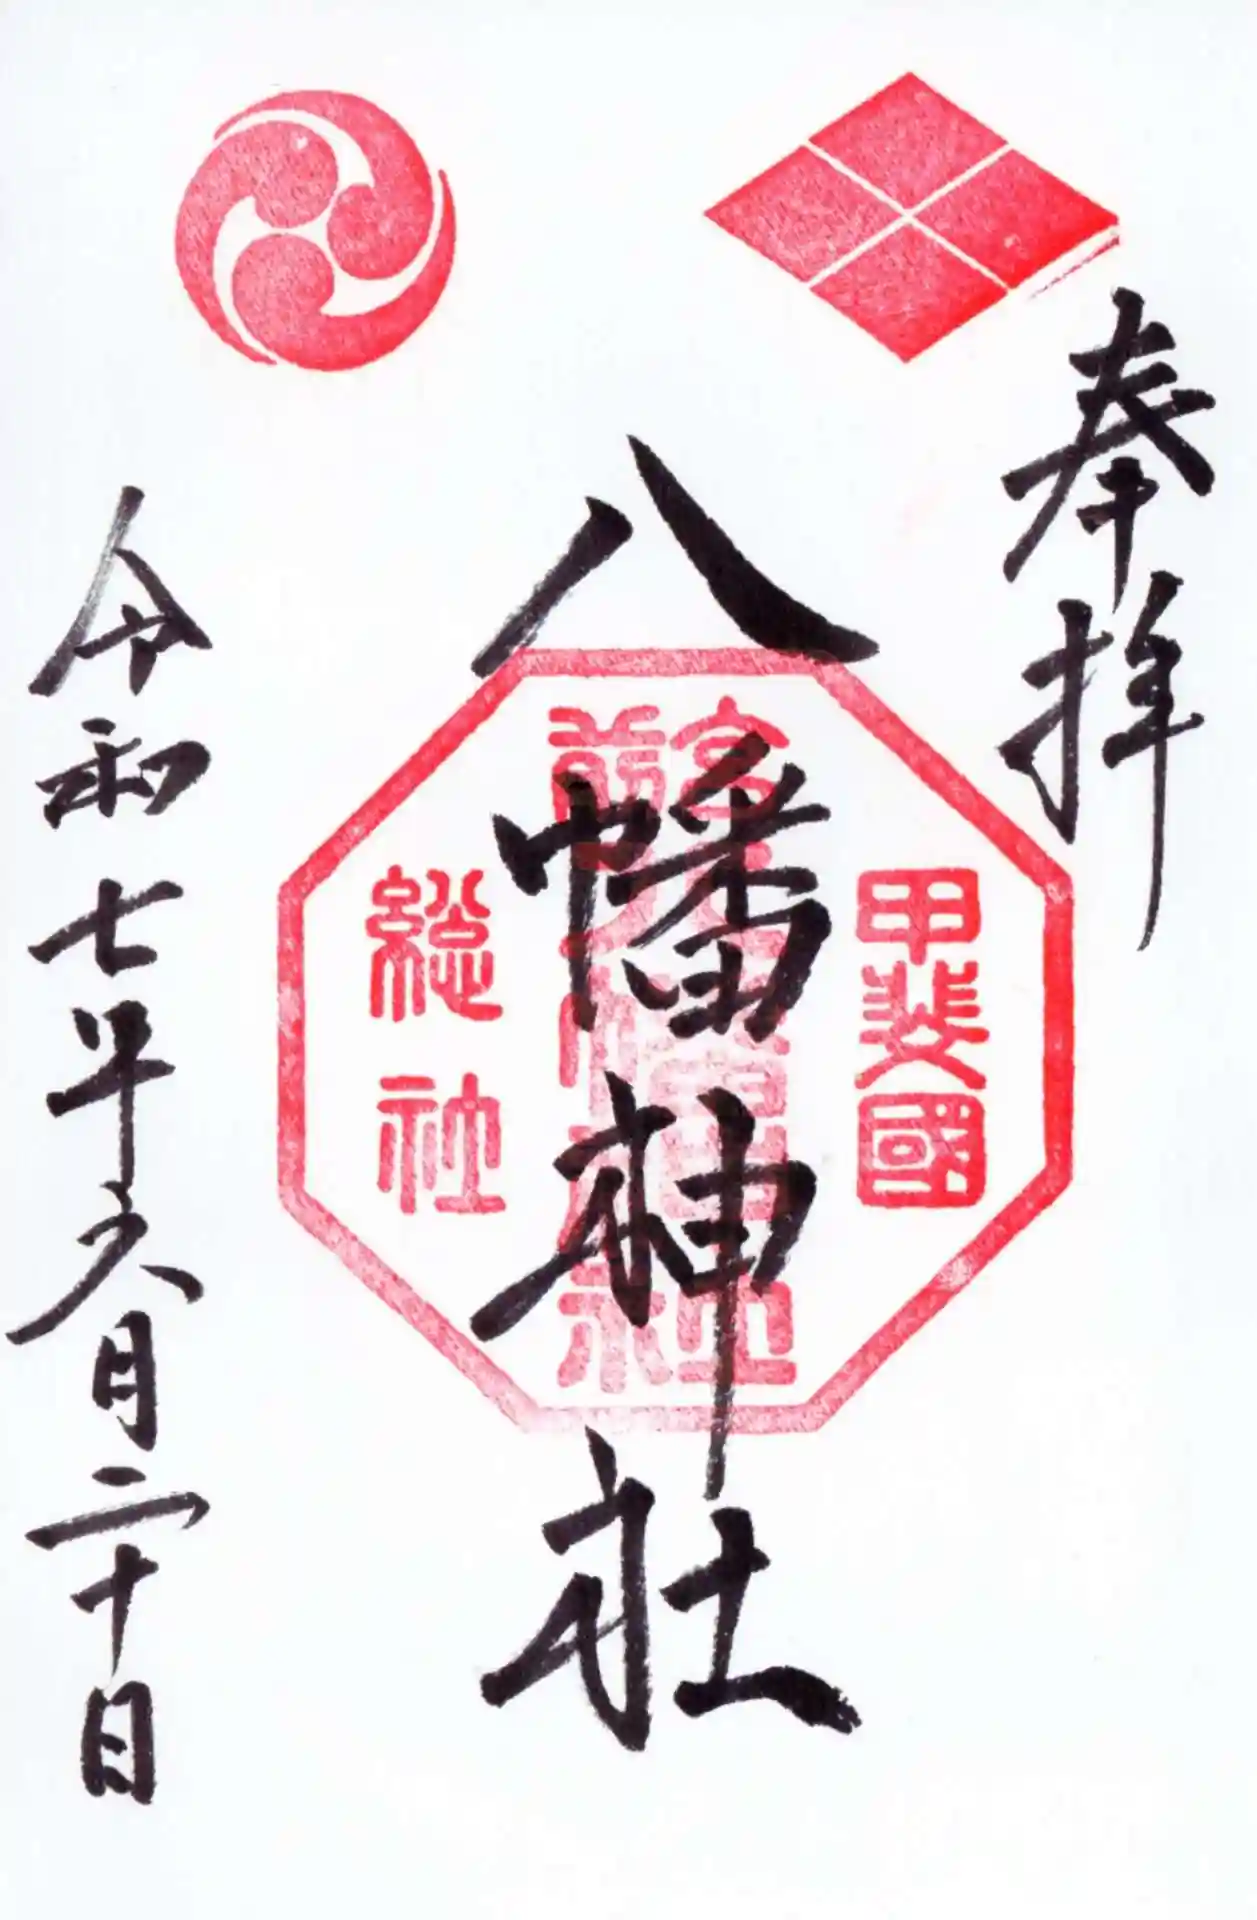 奉拝
八幡神社
甲斐國
総社
令和七年六月二十日